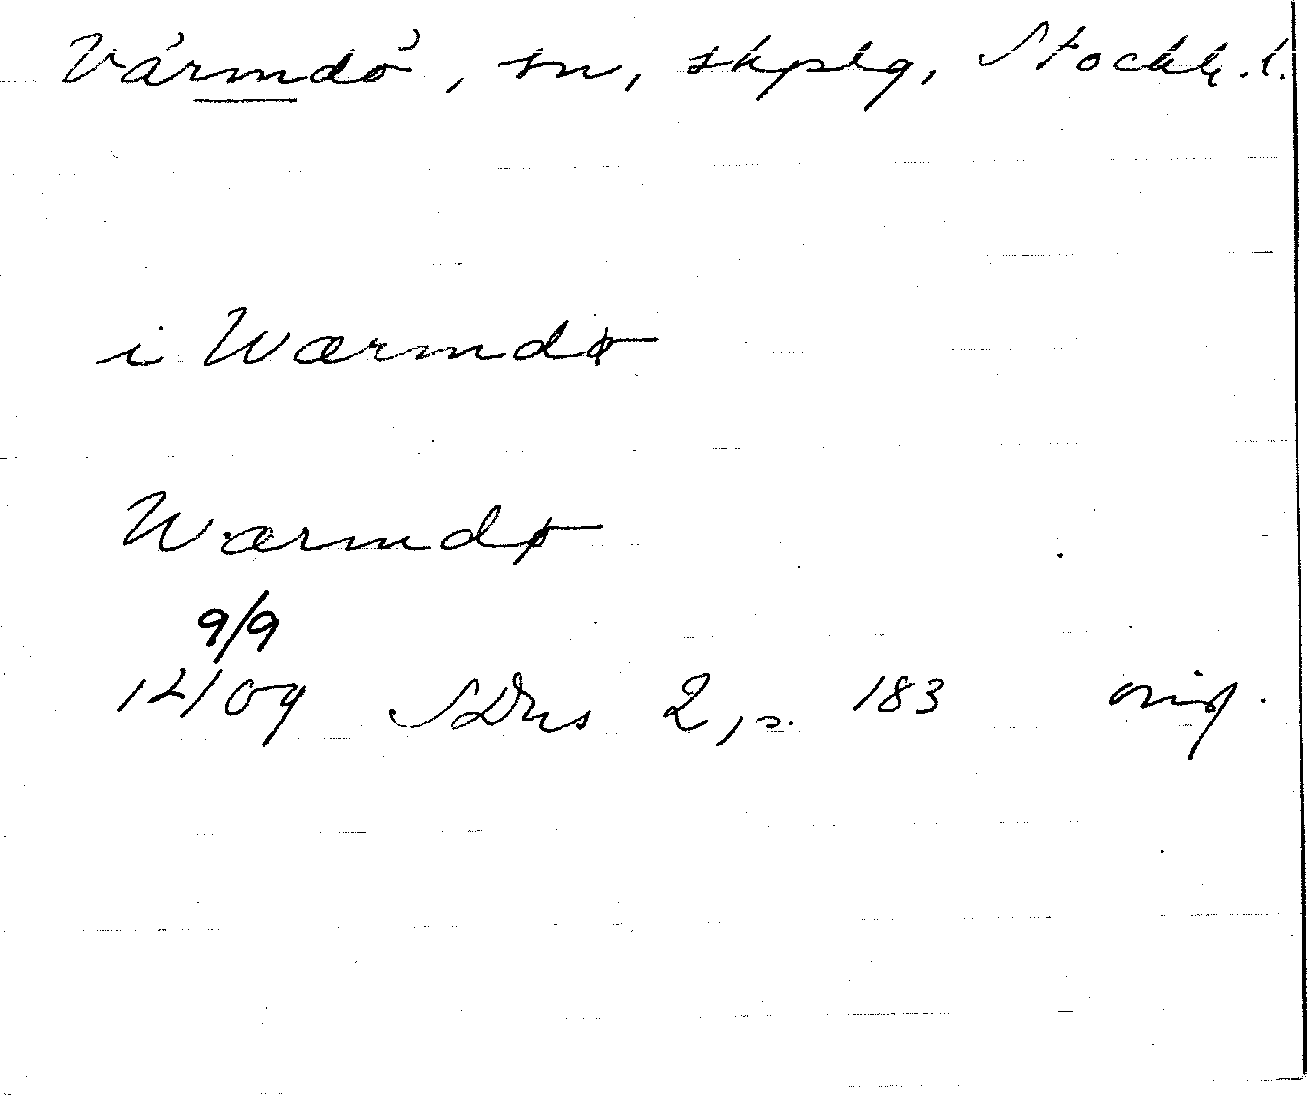 Värmdö, sn, skplg, Stockh. l.
i Wærmdø
Wærmdø
9/9
1409 SDns 2, s. 183 orig.